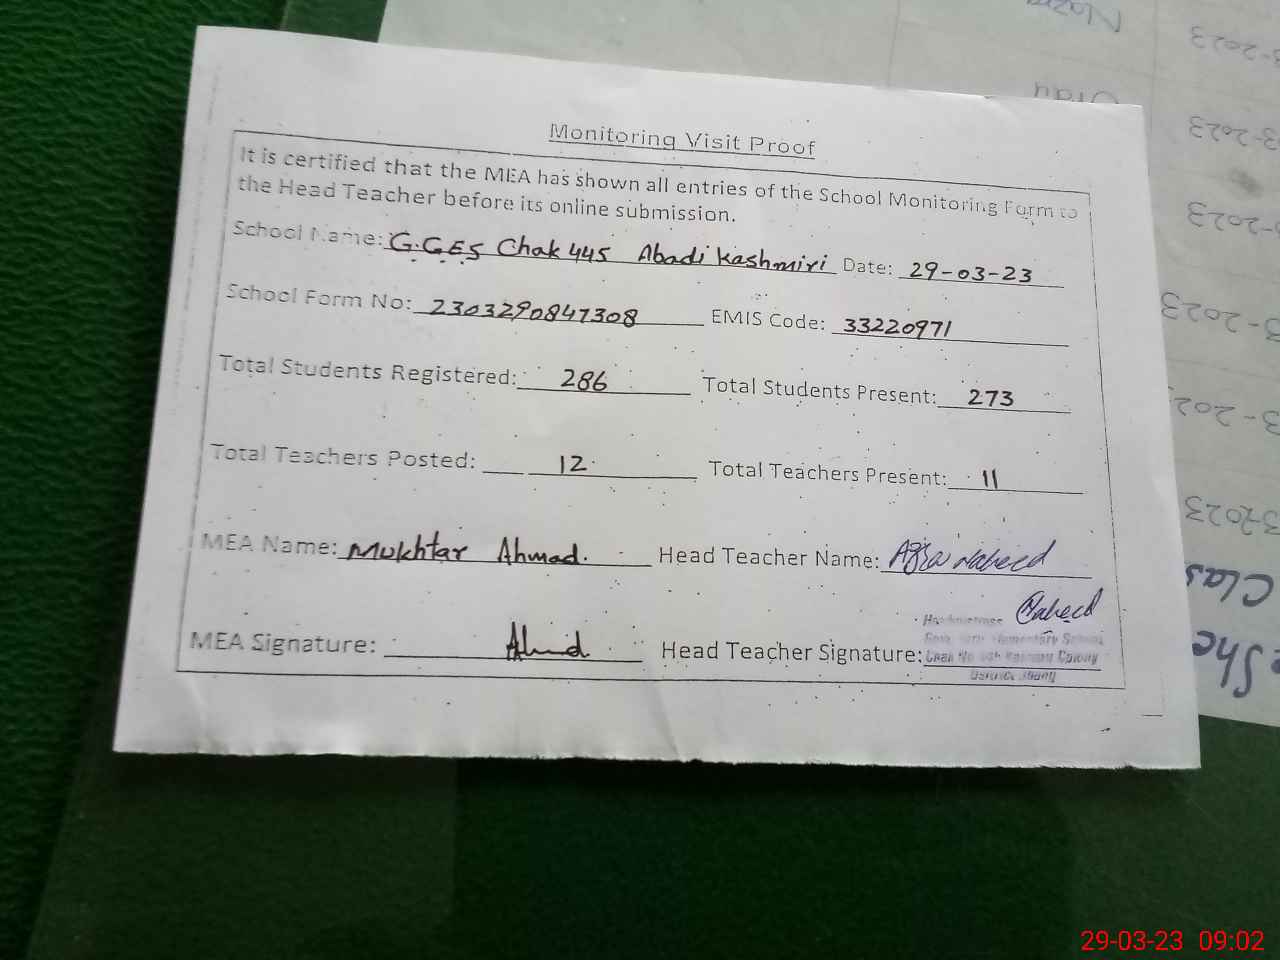 Monitoring Visit Proof
It is certified that the MEA has shown all entries of the School Monitoring Form to
the Head Teacher before its online submission.
School Name: G.GES Chak 445 Abadi Kashmiri Date: 29-03-23
School Form No: 2303290847308 EMIS Code: 33220971
Total Students Registered: 286 Total Students Present: 273
Total Teachers Posted: 12 Total Teachers Present: 11
MEA Name: Mukhtar Ahmad. Head Teacher Name: Naheed
Naheed
Headmistress
Elementary School
MEA Signature: Ahmd Head Teacher Signature: Chak No Colony
Nazra
-2023
Urdu
3-2023
-2023
3-2023
3-202
3-2023
Clas
She
29-03-23 09:02